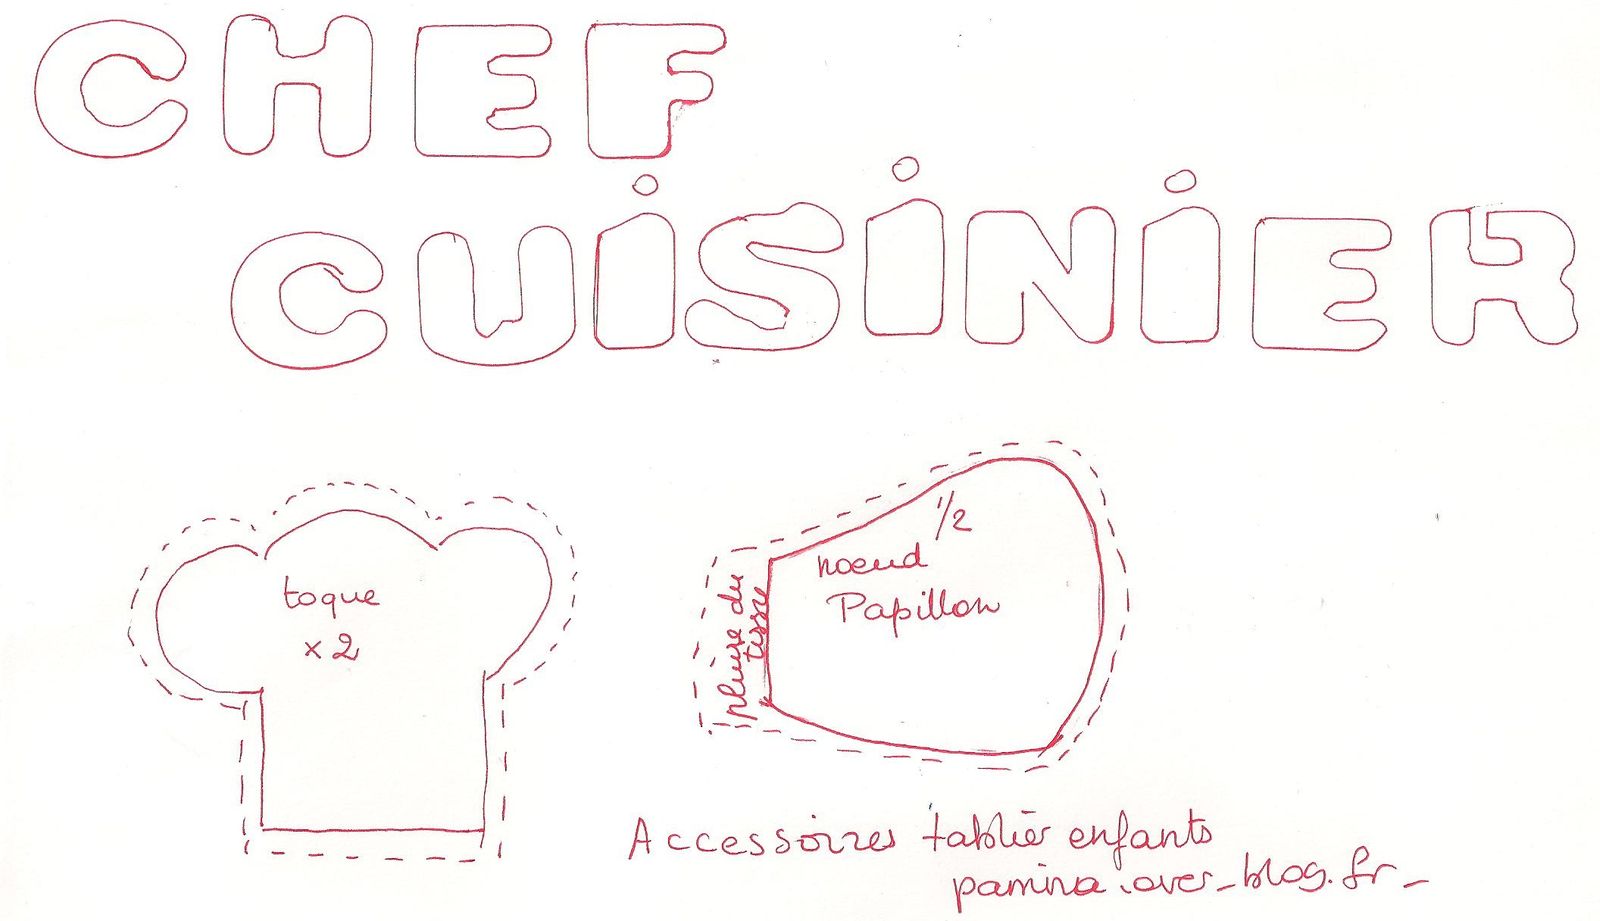 CHEF
CUiSiNiER
toque
x 2
1/2
noeud
Papillon
pliure du
tissu
Accessoires tablier enfants
pamina.over-blog.fr-